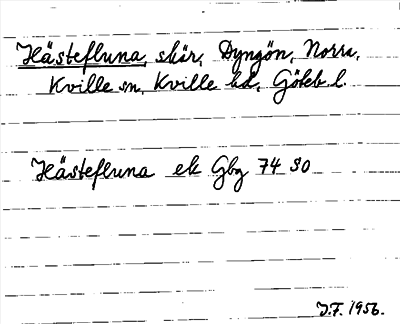 Hästefluna, skär, Dyngön, Norra,
Kville sn, Kville hd, Göteb. l.
Hästefluna ek Gbg 74 SO
J.F. 1956.